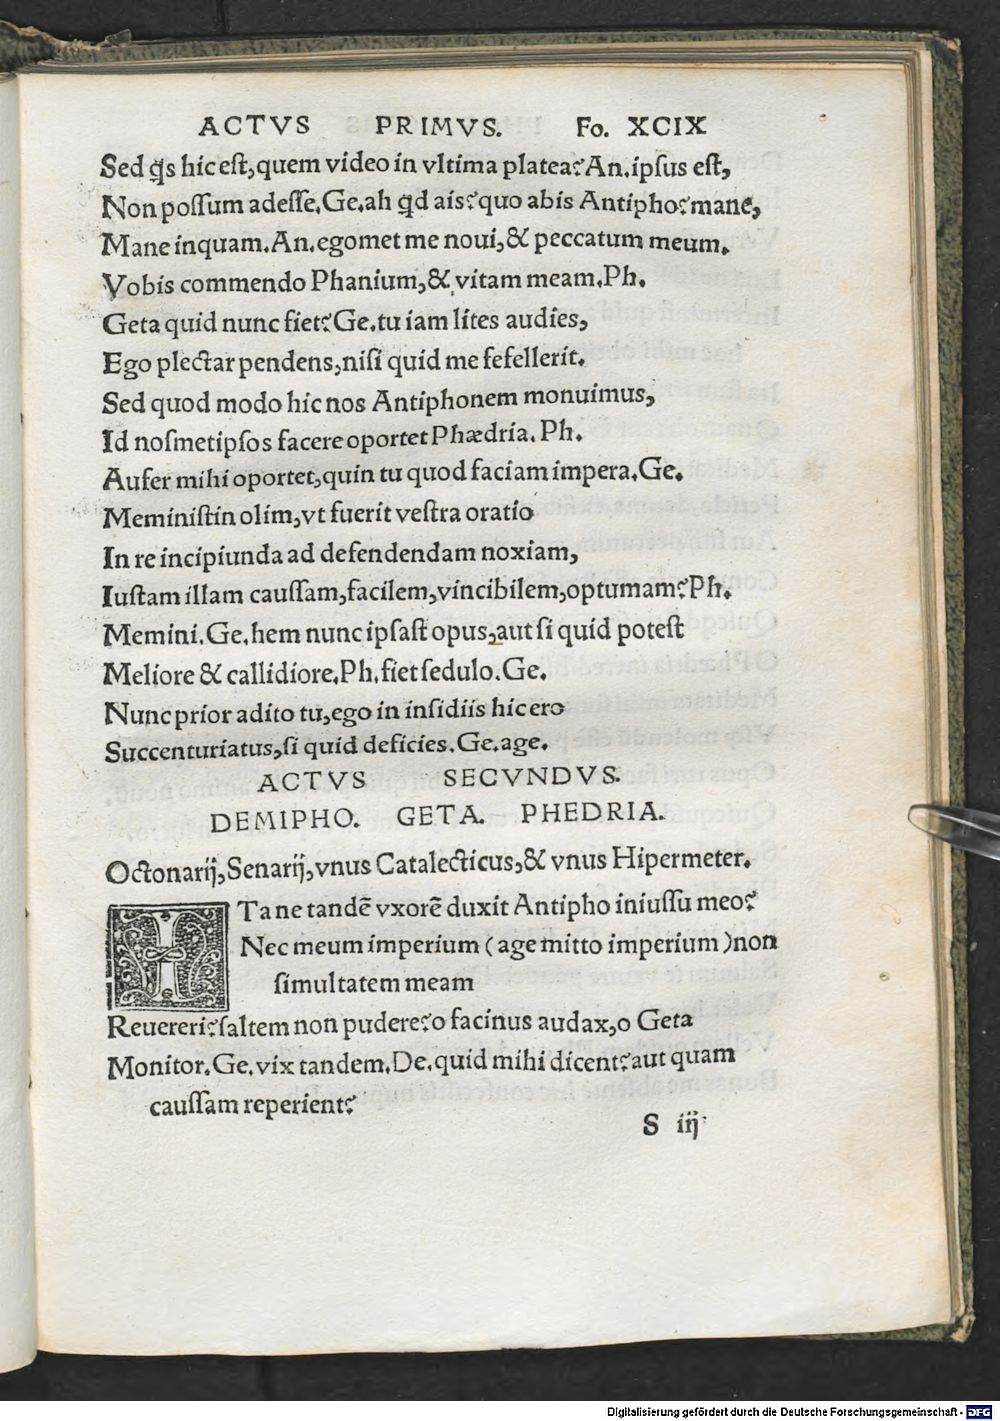 ACTVS PRIMVS. Fo. XCIX
Sed q̃s hic eſt, quem video in vltima platea? An. ipſus eſt,
Non poſſum adeſſe. Ge. ah qd ais? quo abis Antipho? mane,
Mane inquam. An. egomet me noui, & peccatum meum.
Vobis commendo Phanium, & vitam meam. Ph.
Geta quid nunc fiet? Ge. tu iam lites audies,
Ego plectar pendens, niſi quid me fefellerit.
Sed quod modo hic nos Antiphonem monuimus,
Id noſmetipſos facere oportet Phædria. Ph.
Aufer mihi oportet, quin tu quod faciam impera. Ge.
Meminiſtin olim, vt fuerit veſtra oratio
In re incipiunda ad defendendam noxiam,
Iuſtam illam cauſſam, facilem, vincibilem, optumam? Ph.
Memini. Ge. hem nunc ipſaſt opus, aut ſi quid poteſt
Meliore & callidiore. Ph. fiet ſedulo. Ge.
Nunc prior adito tu, ego in inſidiis hic ero
Succenturiatus, ſi quid deficies. Ge. age.
ACTVS SECVNDVS.
DEMIPHO. GETA. PHEDRIA.
Octonarij, Senarij, vnus Catalecticus, & vnus Hipermeter.
ITa ne tandē vxorē duxit Antipho iniuſſu meo?
Nec meum imperium ( age mitto imperium ) non
ſimultatem meam
Reuereri? ſaltem non pudere? o facinus audax, o Geta
Monitor. Ge. vix tandem. De. quid mihi dicent? aut quam
cauſſam reperient?
S iij
Digitalisierung gefördert durch die Deutsche Forschungsgemeinschaft - DFG